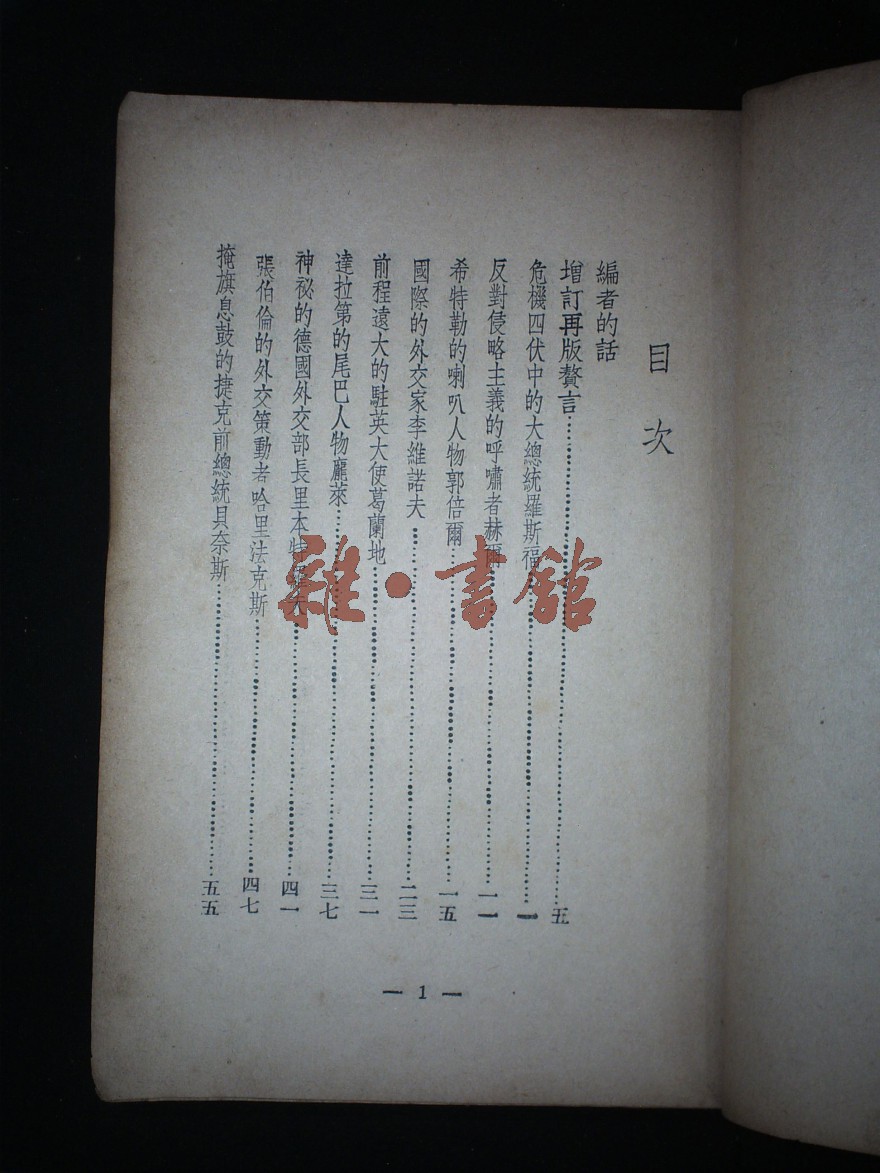 目次
編者的話
增訂再版贅言……五
危機四伏中的大總統羅斯福……一
反對侵略主義的呼嘯者赫爾……一一
希特勒的喇叭人物郭倍爾……一五
國際的外交家李維諾夫……二三
前程遠大的駐英大使葛蘭地……三一
達拉第的尾巴人物龐萊……三七
神祕的德國外交部長里本特……四一
張伯倫的外交策動者哈里法克斯……四七
掩旗息鼓的捷克前總統貝奈斯……五五
— 1 —
雜·書館